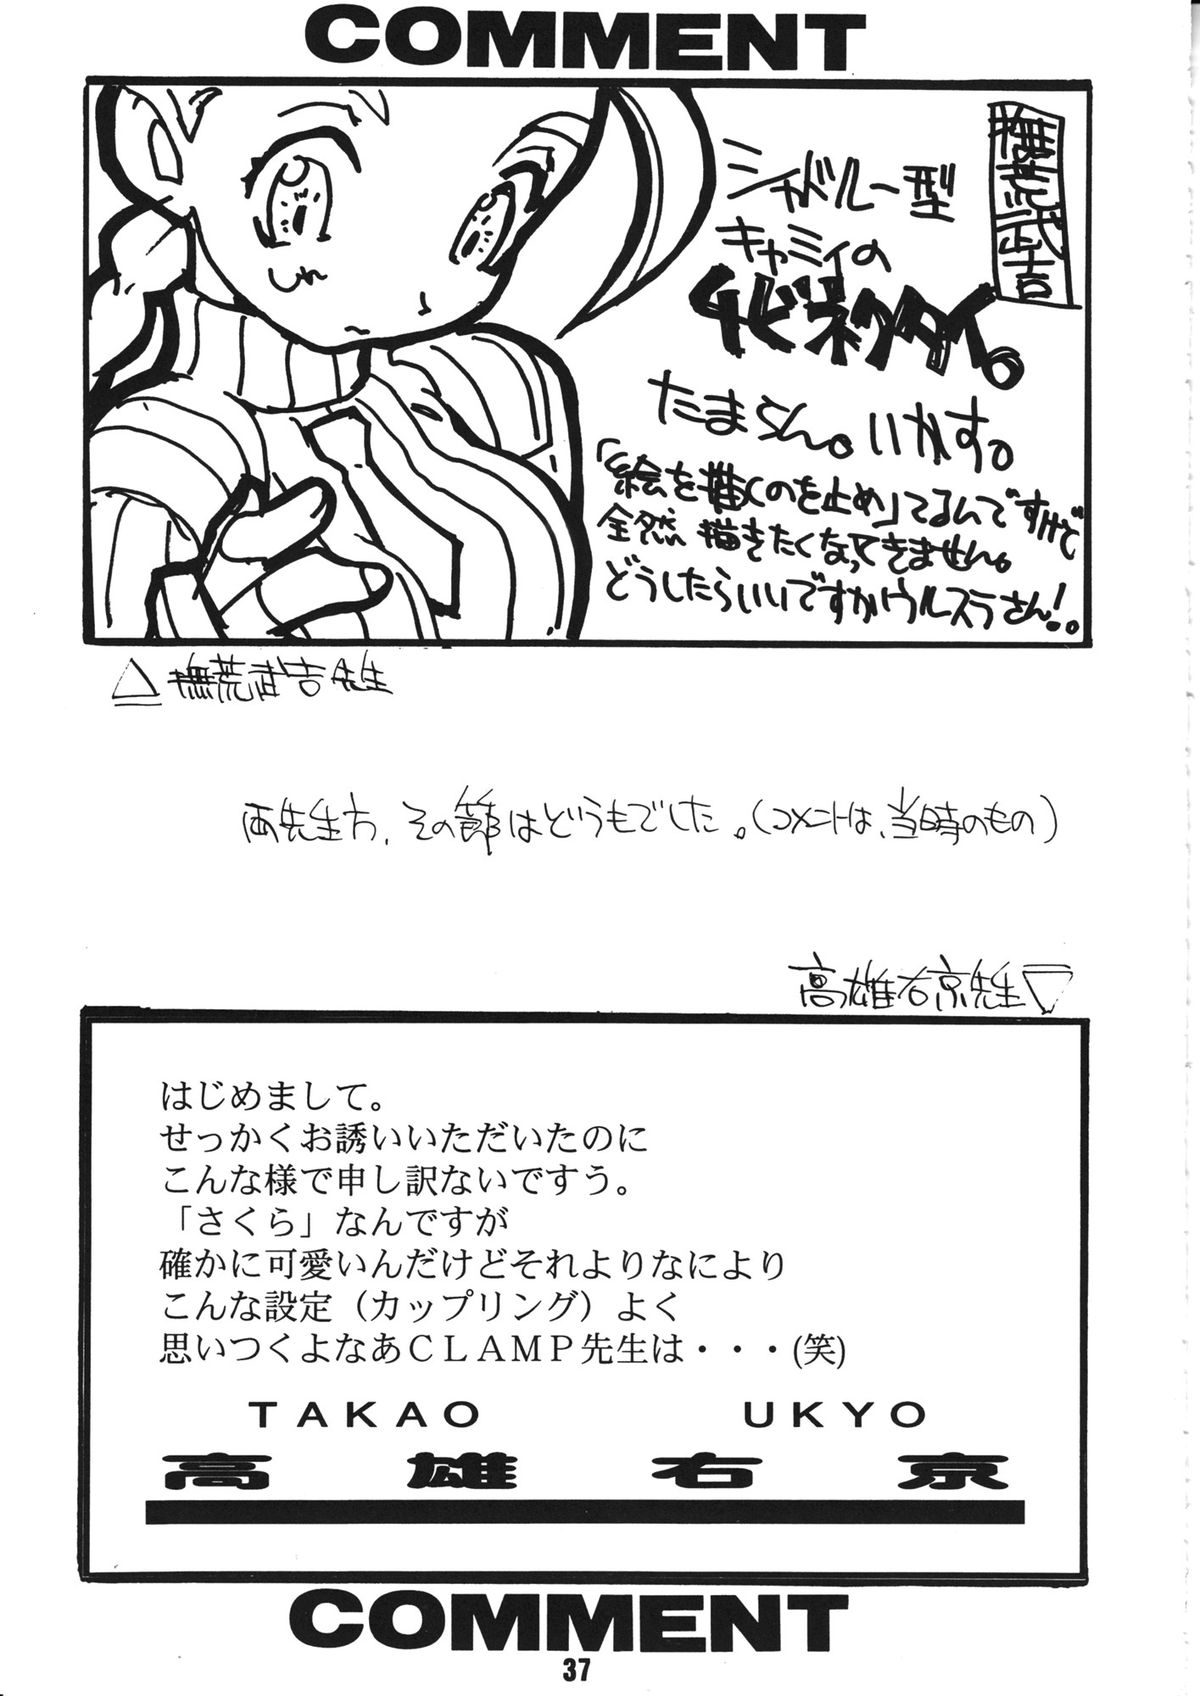 COMMENT
撫荒武吉
シャドルー型
キャミィの
チビネクタイ。
たまらん。いかす。
「絵を描くのを止め」てるんですけど
全然描きたくなってきません。
どうしたらいいですかウルスラさん!。
△撫荒武吉先生
両先生方、その節はどうもでした。(コメントは、当時のもの)
高雄右京先生▽
はじめまして。
せっかくお誘いいただいたのに
こんな様で申し訳ないですう。
「さくら」なんですが
確かに可愛いんだけどそれよりなにより
こんな設定（カップリング）よく
思いつくよなあＣＬＡＭＰ先生は・・・(笑)
TAKAO UKYO
高雄右京
COMMENT
37